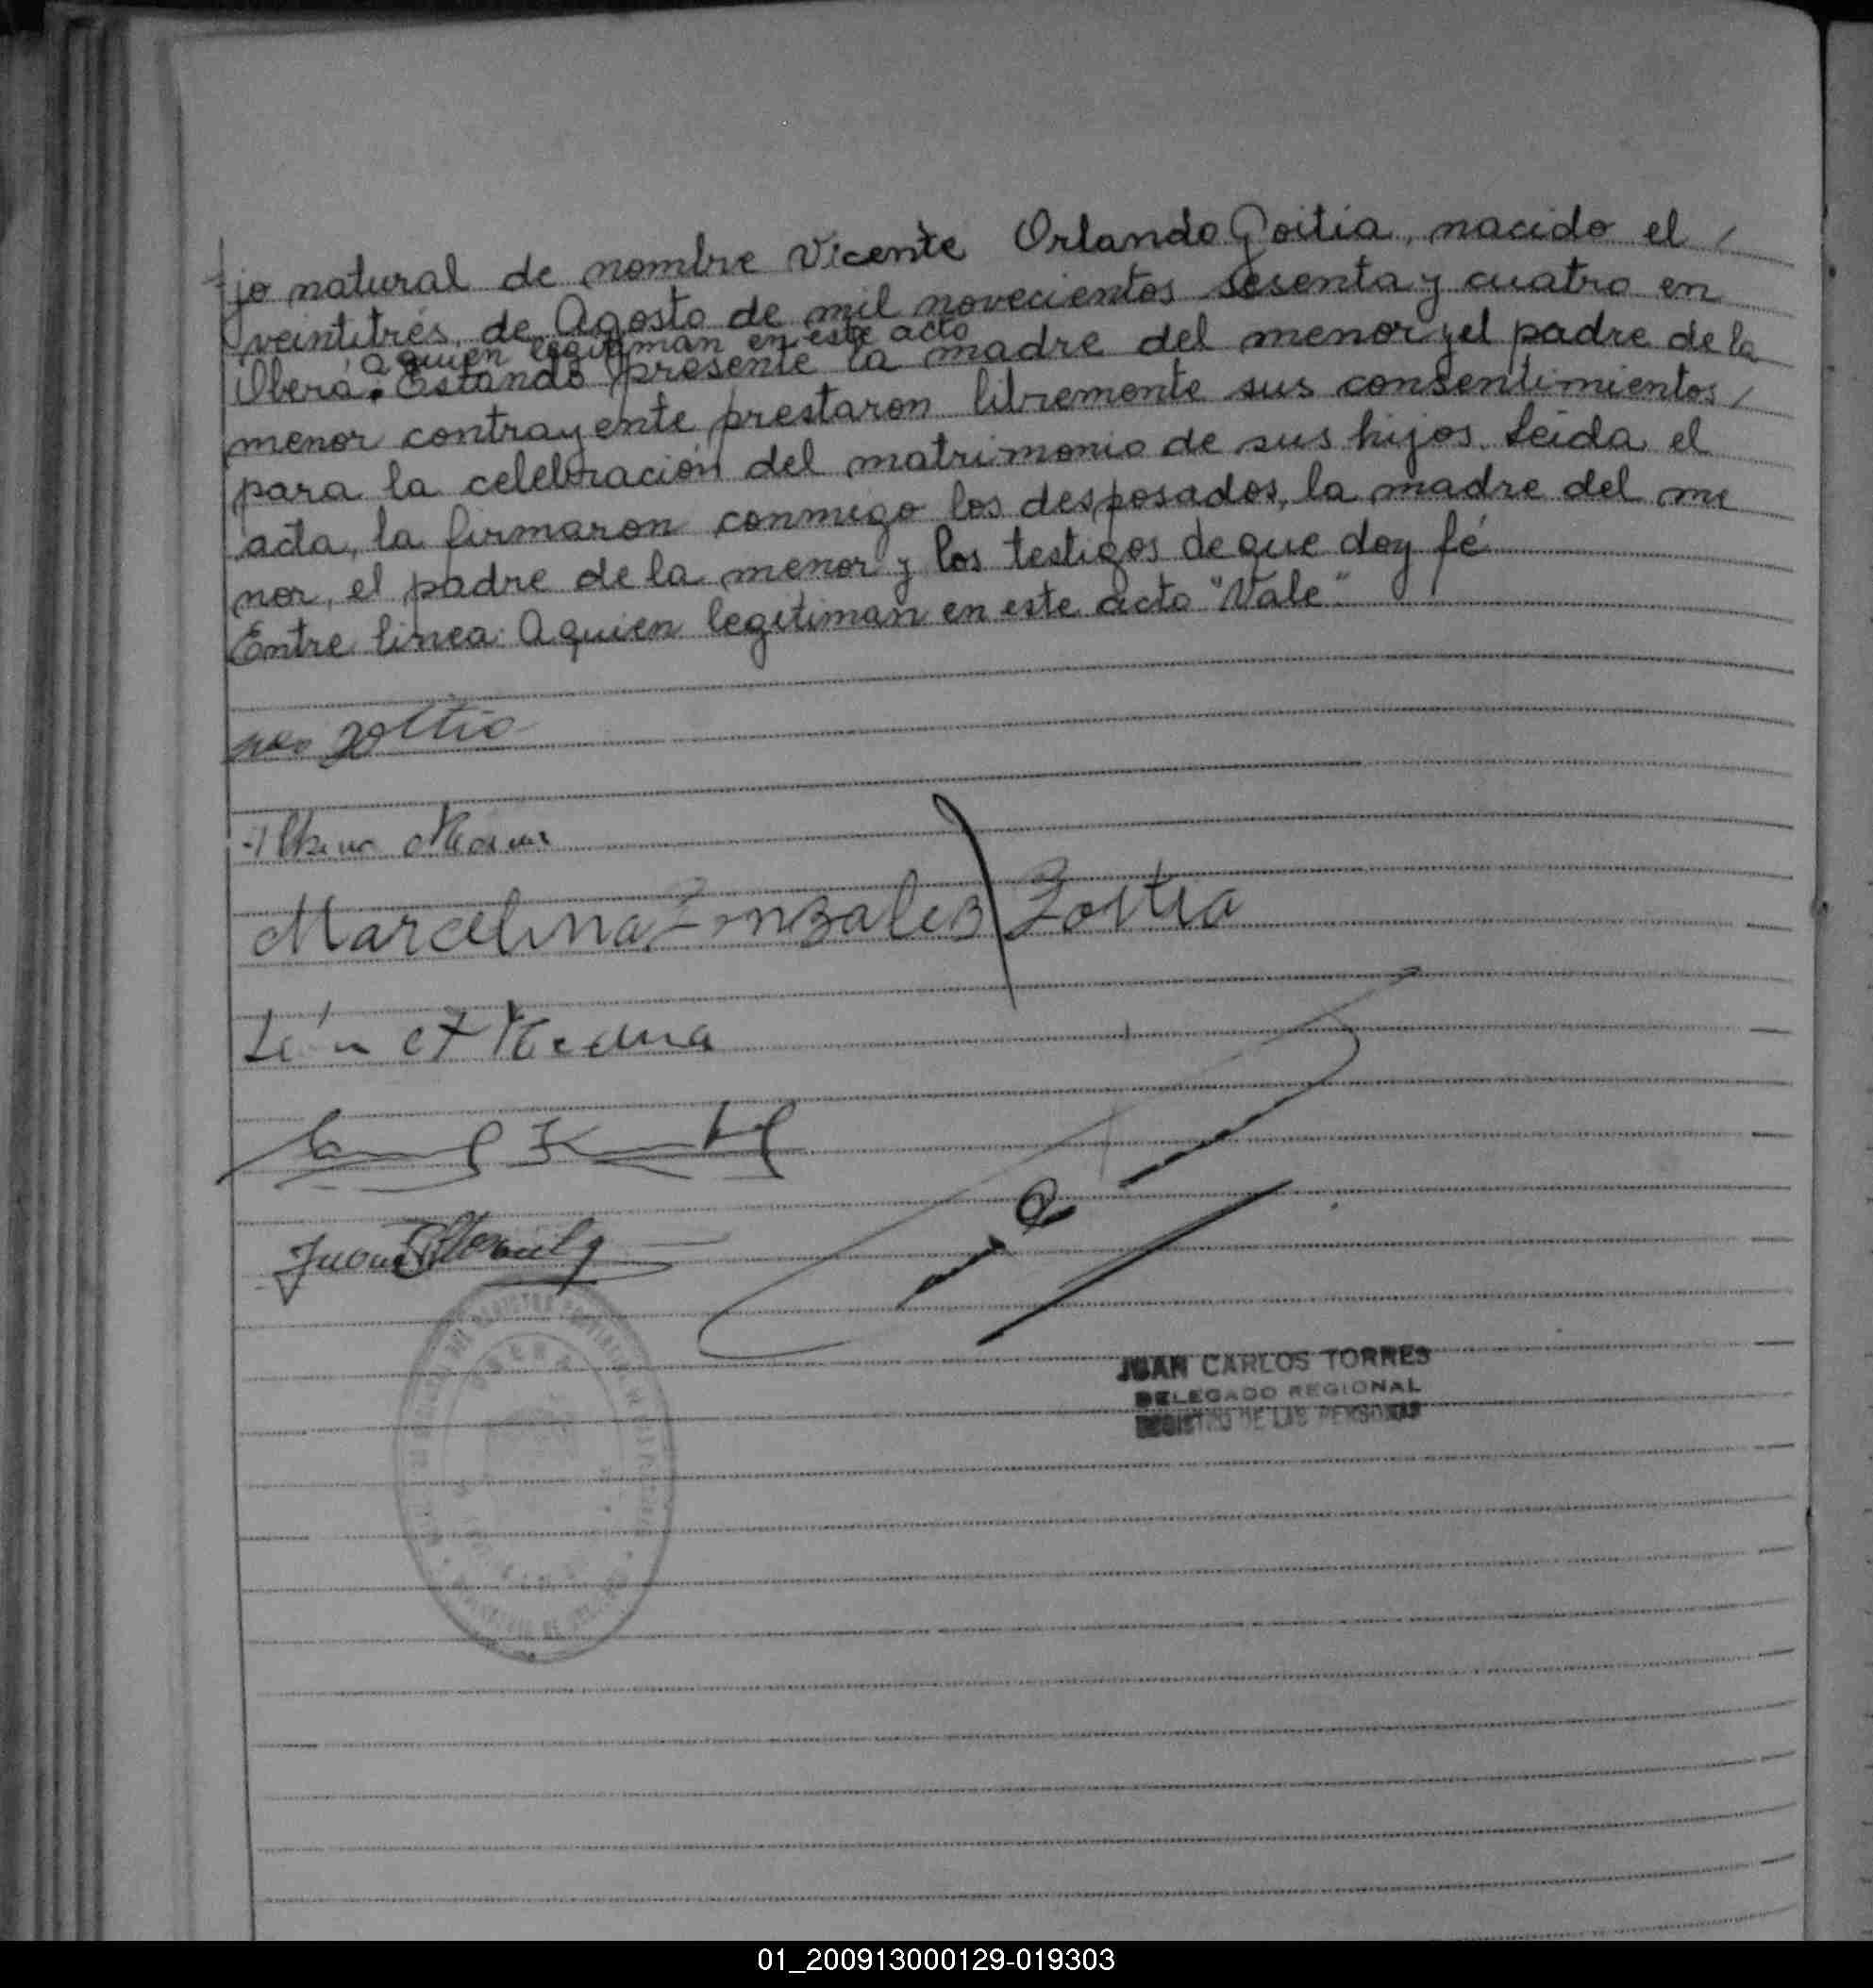 jo natural de nombre Vicente Orlando Goitia, nacido el /
veintitrés de Agosto de mil novecientos sesenta y cuatro en
a quien legitiman en este acto
Oberá. Estando presente la madre del menor y el padre de la
menor contrayente prestaron libremente sus consentimientos /
para la celebración del matrimonio de sus hijos. Leida el
acta, la firmaron conmigo los desposados, la madre del me
nor, el padre de la menor y los testigos de que doy fé
Entre linea: A quien legitiman en este acto "Vale"
goitia
Marcelina Gonzales Goitia
Medina
Juan
JUAN CARLOS TORRES
DELEGADO REGIONAL
REGISTRO DE LAS PERSONAS
01_200913000129-019303